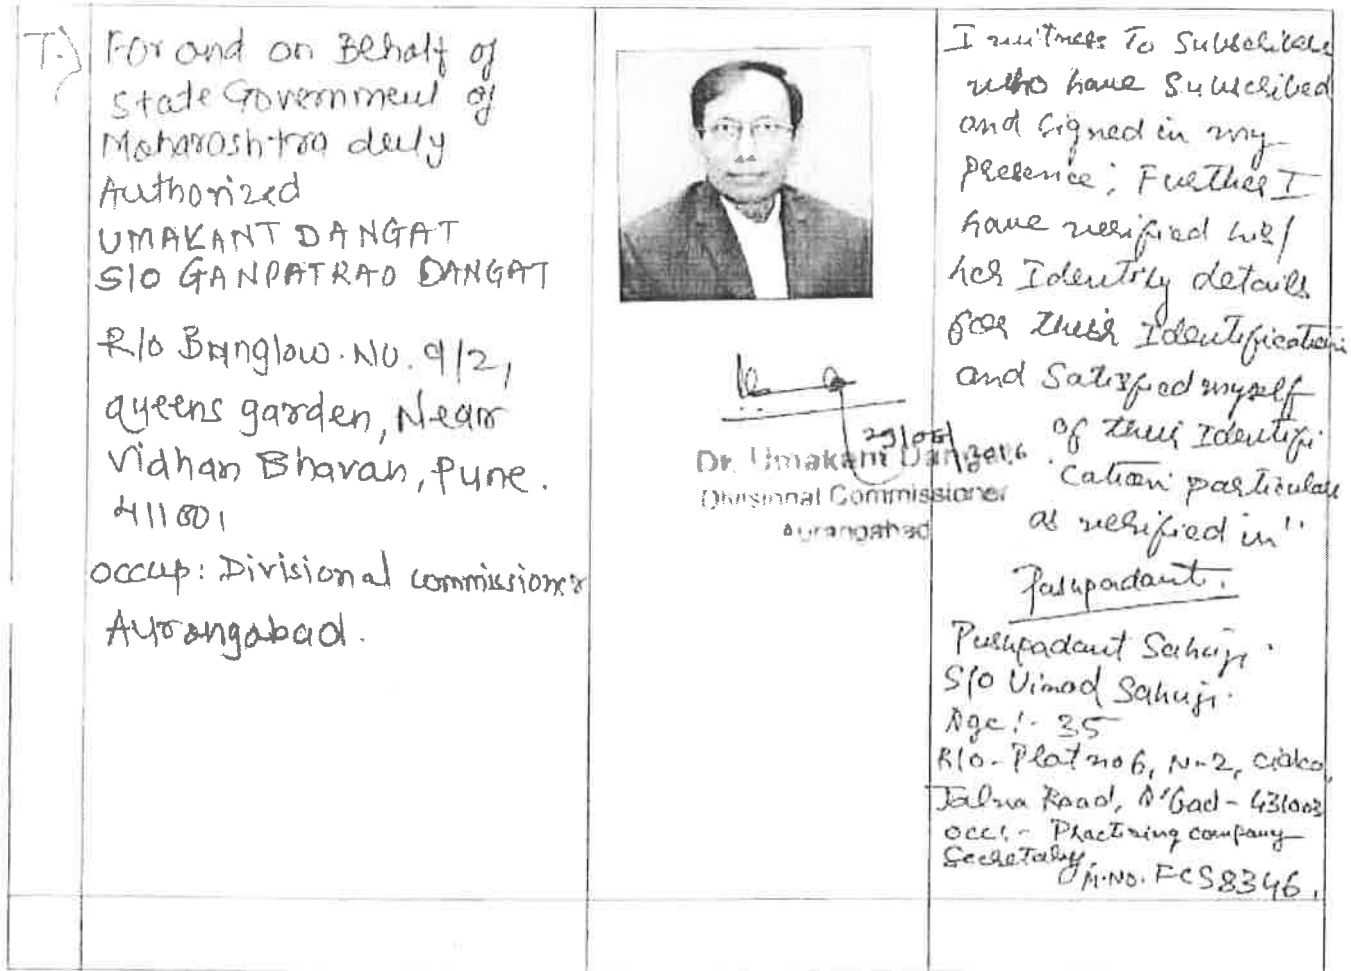 7.)
For and on Behalf of
State Government of
Maharashtra duly
Authorized
UMAKANT DANGAT
S/O GANPATRAO DANGAT
R/o Banglow. No. 9/2,
queens garden, Near
Vidhan Bhavan, Pune.
411001
occup: Divisional commissioner
Aurangabad.
29/06/2016
Dr. Umakant Dangat
Divisional Commissioner
Aurangabad
I witness to Subscriber
who have Subscribed
and signed in my
Presence; Further I
have verified his/
her Identity details
for their Identification
and Satisfied myself
of their Identifi
cation particulars
as verified in"
Pushpadant.
Pushpadant Sahuji.
S/o Vinod Sahuji.
Age:- 35
R/o- Plot no 6, N-2, Cidco,
Jalna Road, A'bad - 431003
occ:- Practising company
Secretary.
M.NO. FCS8346.